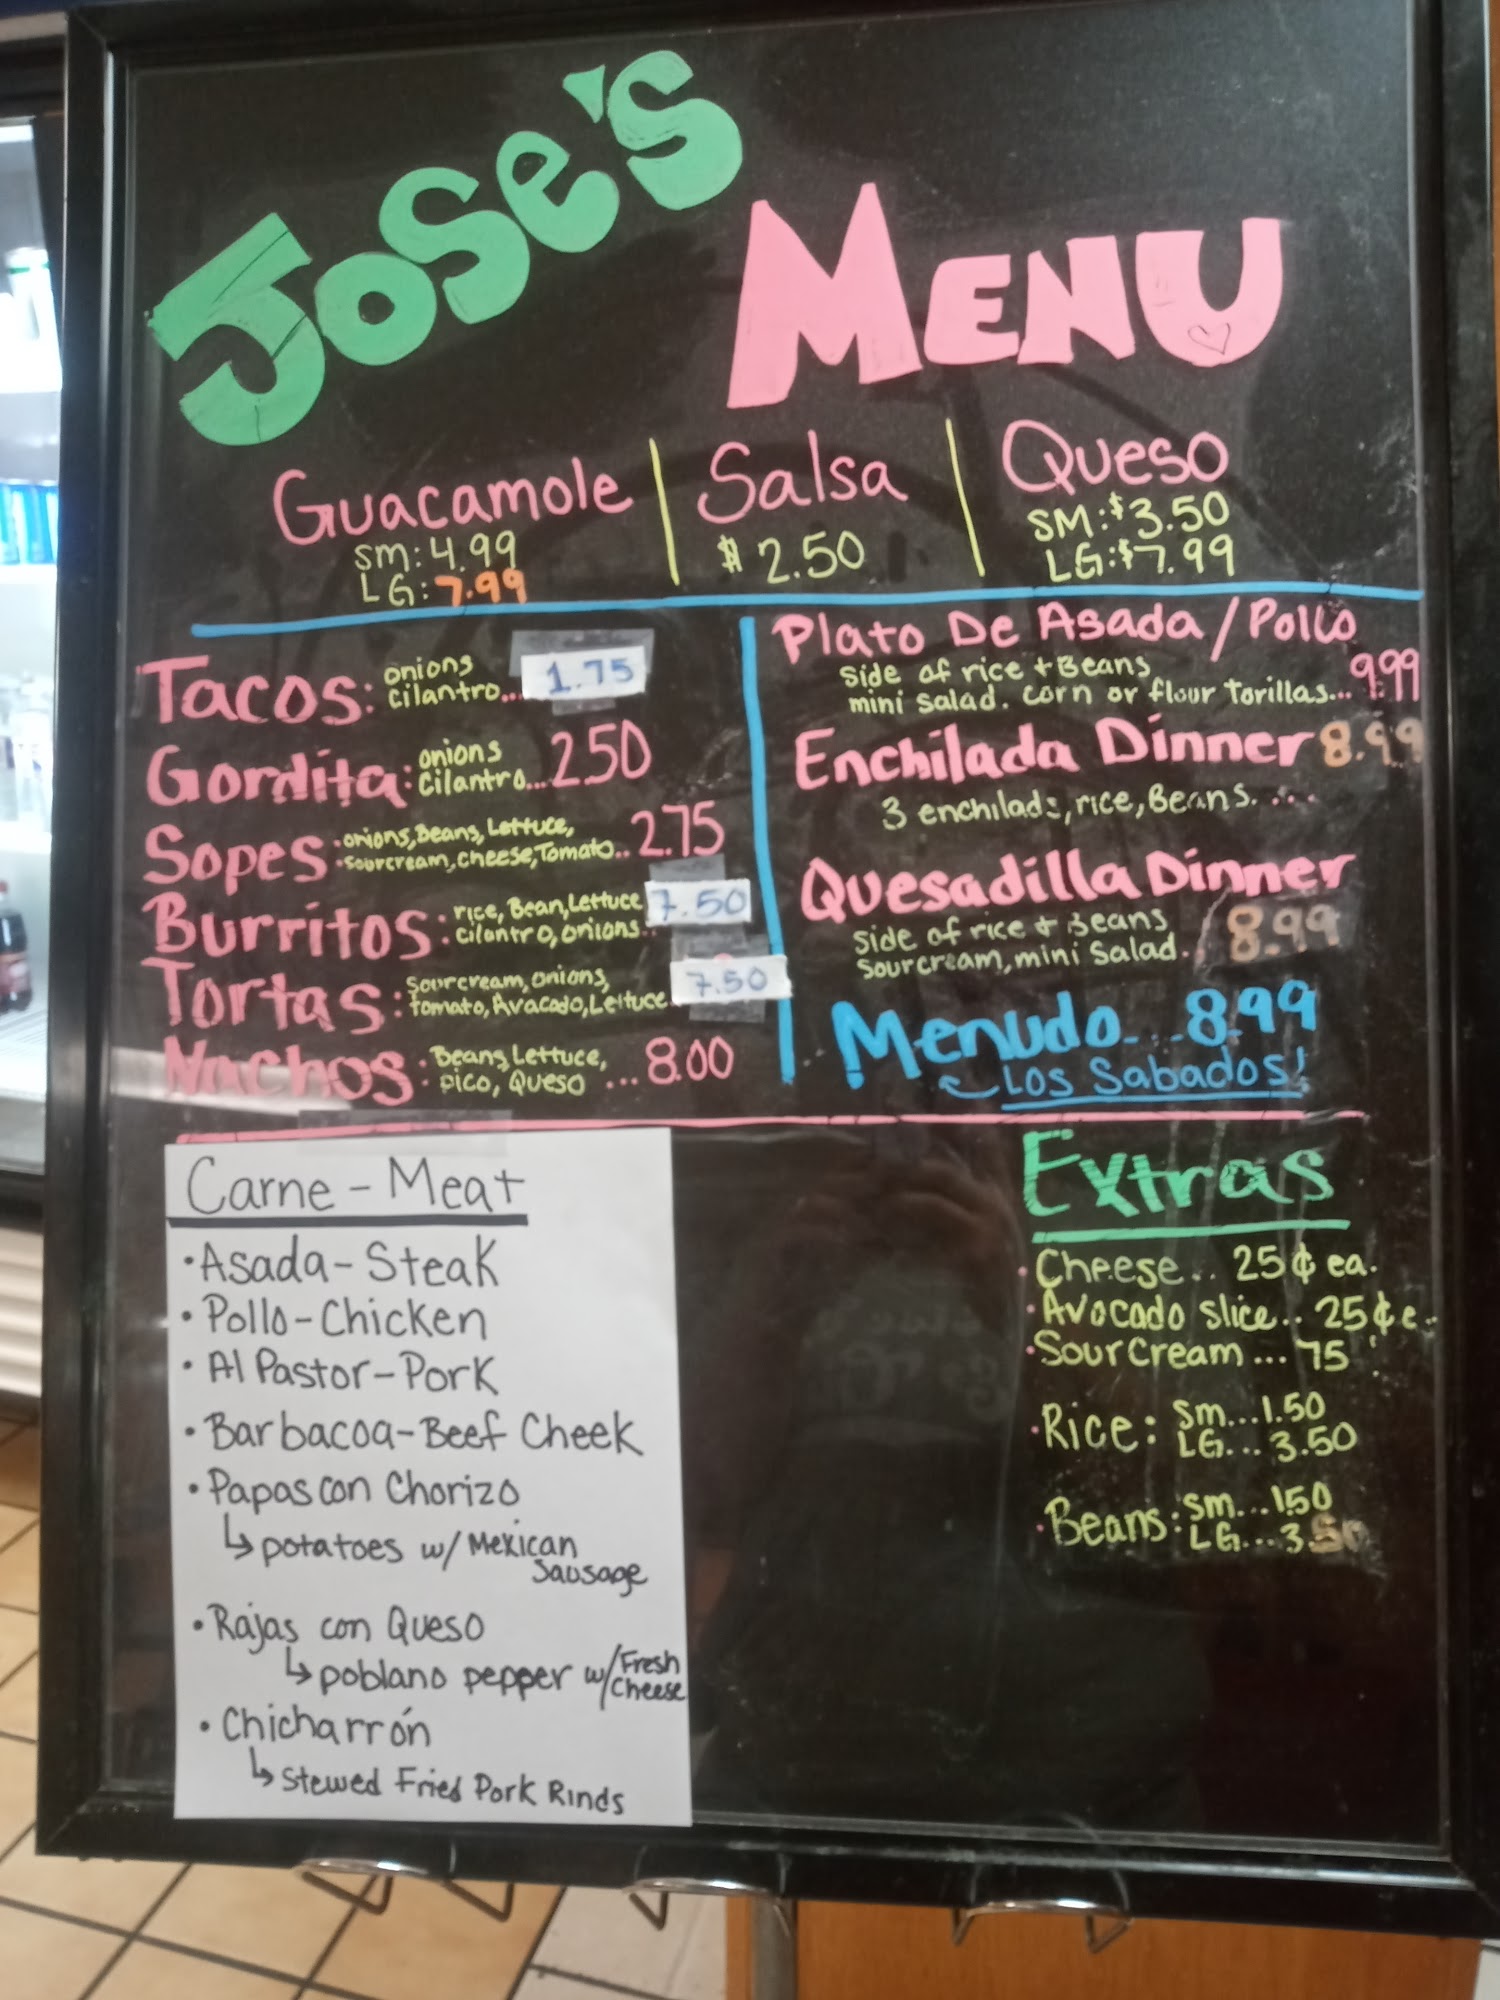 Jose's
Menu
Guacamole
SM: 4.99
LG: 7.99
Salsa
$2.50
Queso
SM: $3.50
LG: $7.99
Tacos: onions
cilantro... 1.75
Gordita: onions
cilantro... 2.50
Sopes: onions, Beans, Lettuce,
sourcream, cheese, Tomato.. 2.75
Burritos: rice, Bean, Lettuce 7.50
cilantro, onions..
Tortas: sourcream, onions,
tomato, Avacado, Lettuce 7.50
Nachos: Beans, Lettuce,
pico, Queso ... 8.00
Plato De Asada/Pollo
side of rice + Beans
mini salad. corn or flour Torillas... 9.99
Enchilada Dinner 8.99
3 enchilads, rice, Beans. ...
Quesadilla Dinner
side of rice + Beans
sourcream, mini Salad. 8.99
Menudo... 8.99
Los Sabados!
Carne - Meat
• Asada - Steak
• Pollo - Chicken
• Al Pastor - Pork
• Barbacoa - Beef Cheek
• Papas con Chorizo
↳ potatoes w/ Mexican
Sausage
• Rajas con Queso
↳ poblano pepper w/ Fresh
Cheese
• Chicharrón
↳ Stewed Fried Pork Rinds
Extras
• Cheese.. 25¢ ea.
• Avocado slice.. 25¢ e.
• Sour Cream ... 75
• Rice: Sm... 1.50
LG... 3.50
• Beans: Sm... 1.50
LG... 3.50